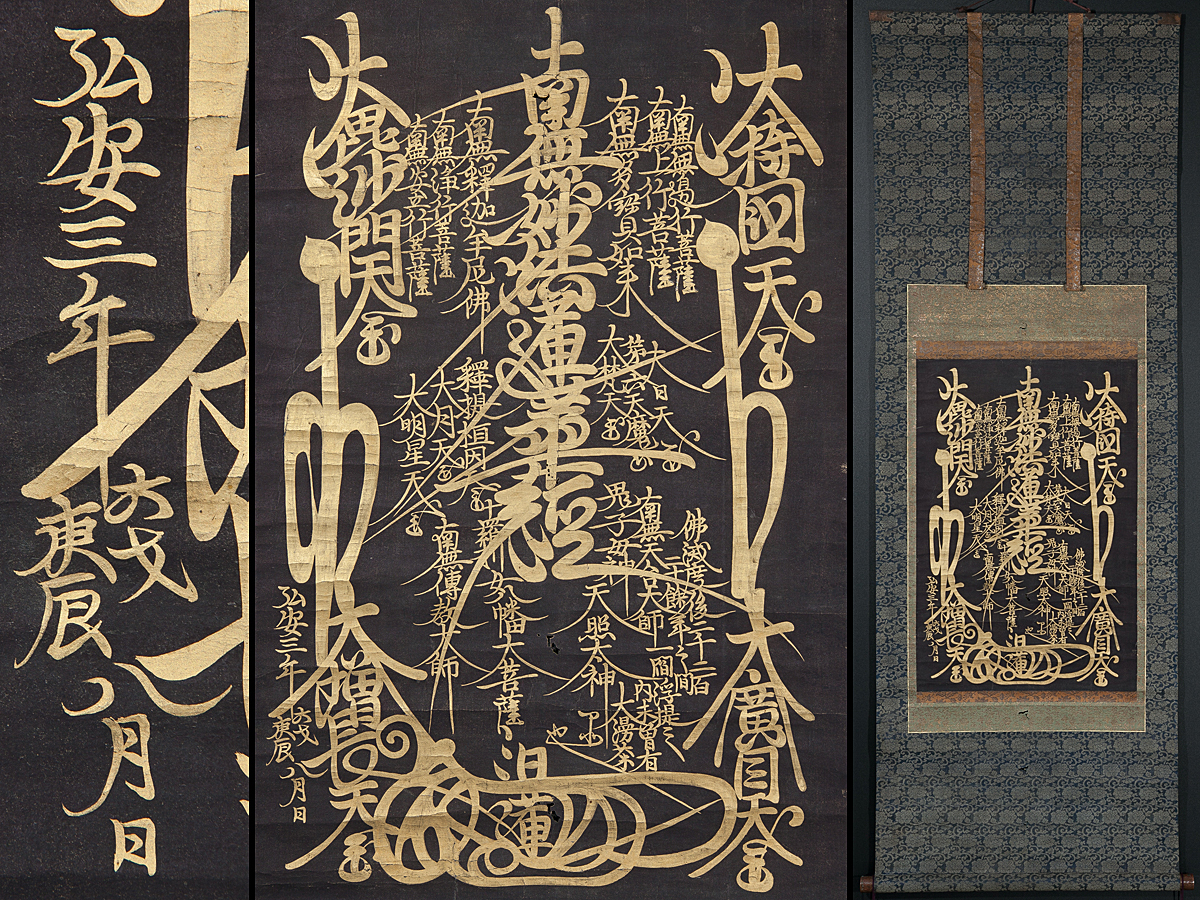 弘安三年
太戈
庚辰
八月日
南無妙法蓮華経
大持国天玉
大毘沙門天玉
南無無邊行菩薩
南無上行菩薩
南無多寳如来
南無釋迦牟尼佛
南無浄行菩薩
南無安立行菩薩
大日天玉
第六天魔王
大梵天玉
釋提桓因
大月天玉
大明星天
佛滅度後二千二百
二十餘年之間
一閻浮提之
内未曾有
大漫荼
羅也
南無天台大師
鬼子母神
天照太神
十羅刹女
八幡大菩薩
南無傳教大師
大廣目天玉
大増長天玉
日蓮
弘安三年
太戈
庚辰
八月日